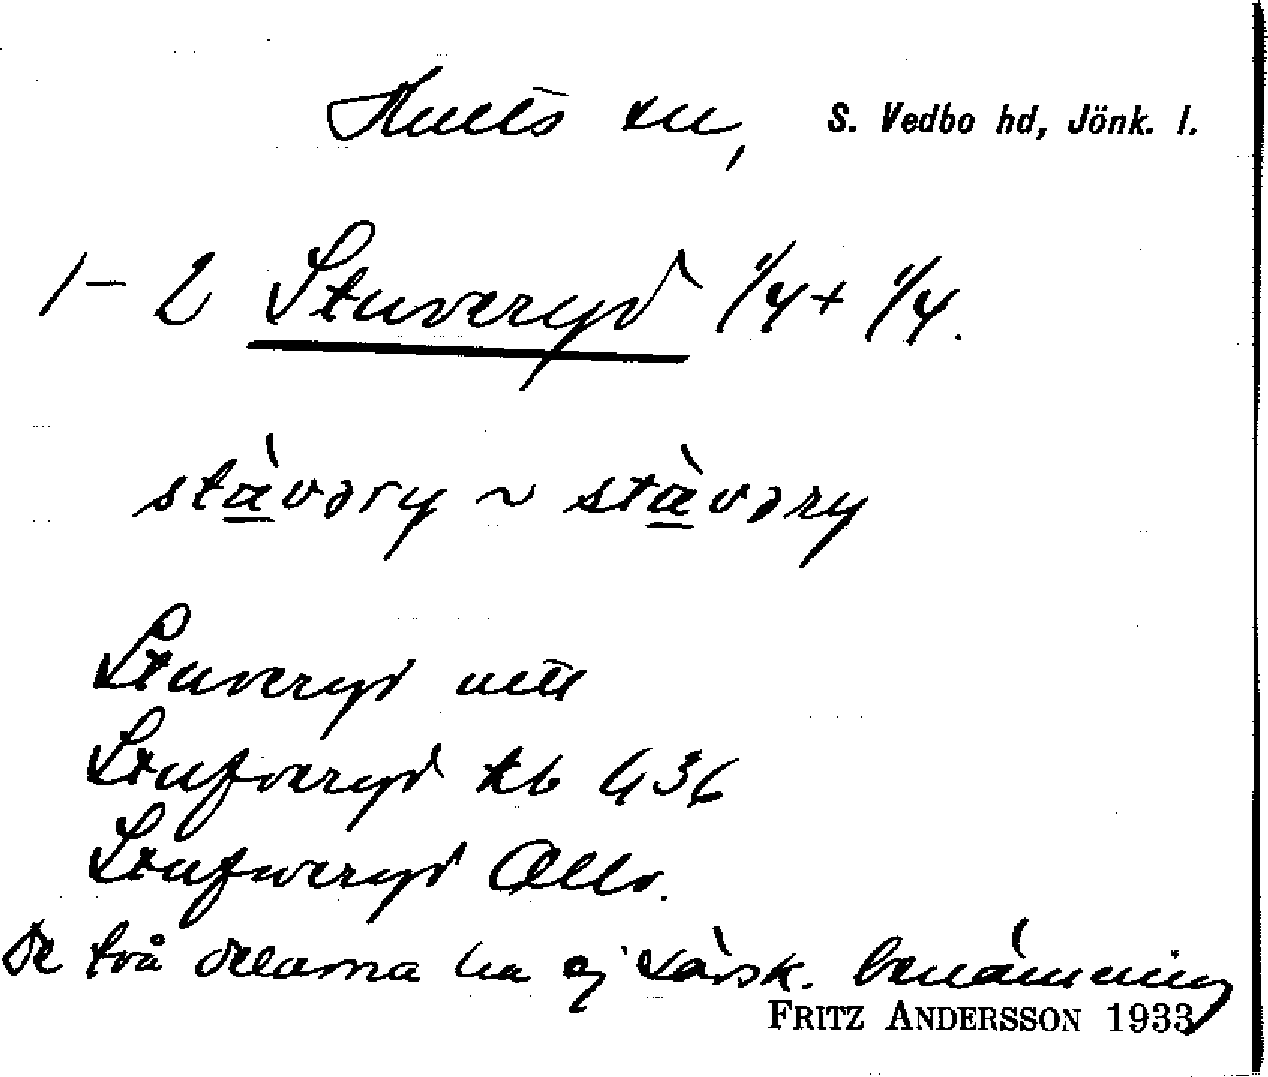 Hults sn, S. Vedbo hd, Jönk. l.
1-2 Stuveryd 1/4 + 1/4.
stàvəry ~ stàvəry
Stuveryd uttt
Stufveryd kb 436
Stufweryd Allo.
De två delarna ha ej särsk. benämning
FRITZ ANDERSSON 1933